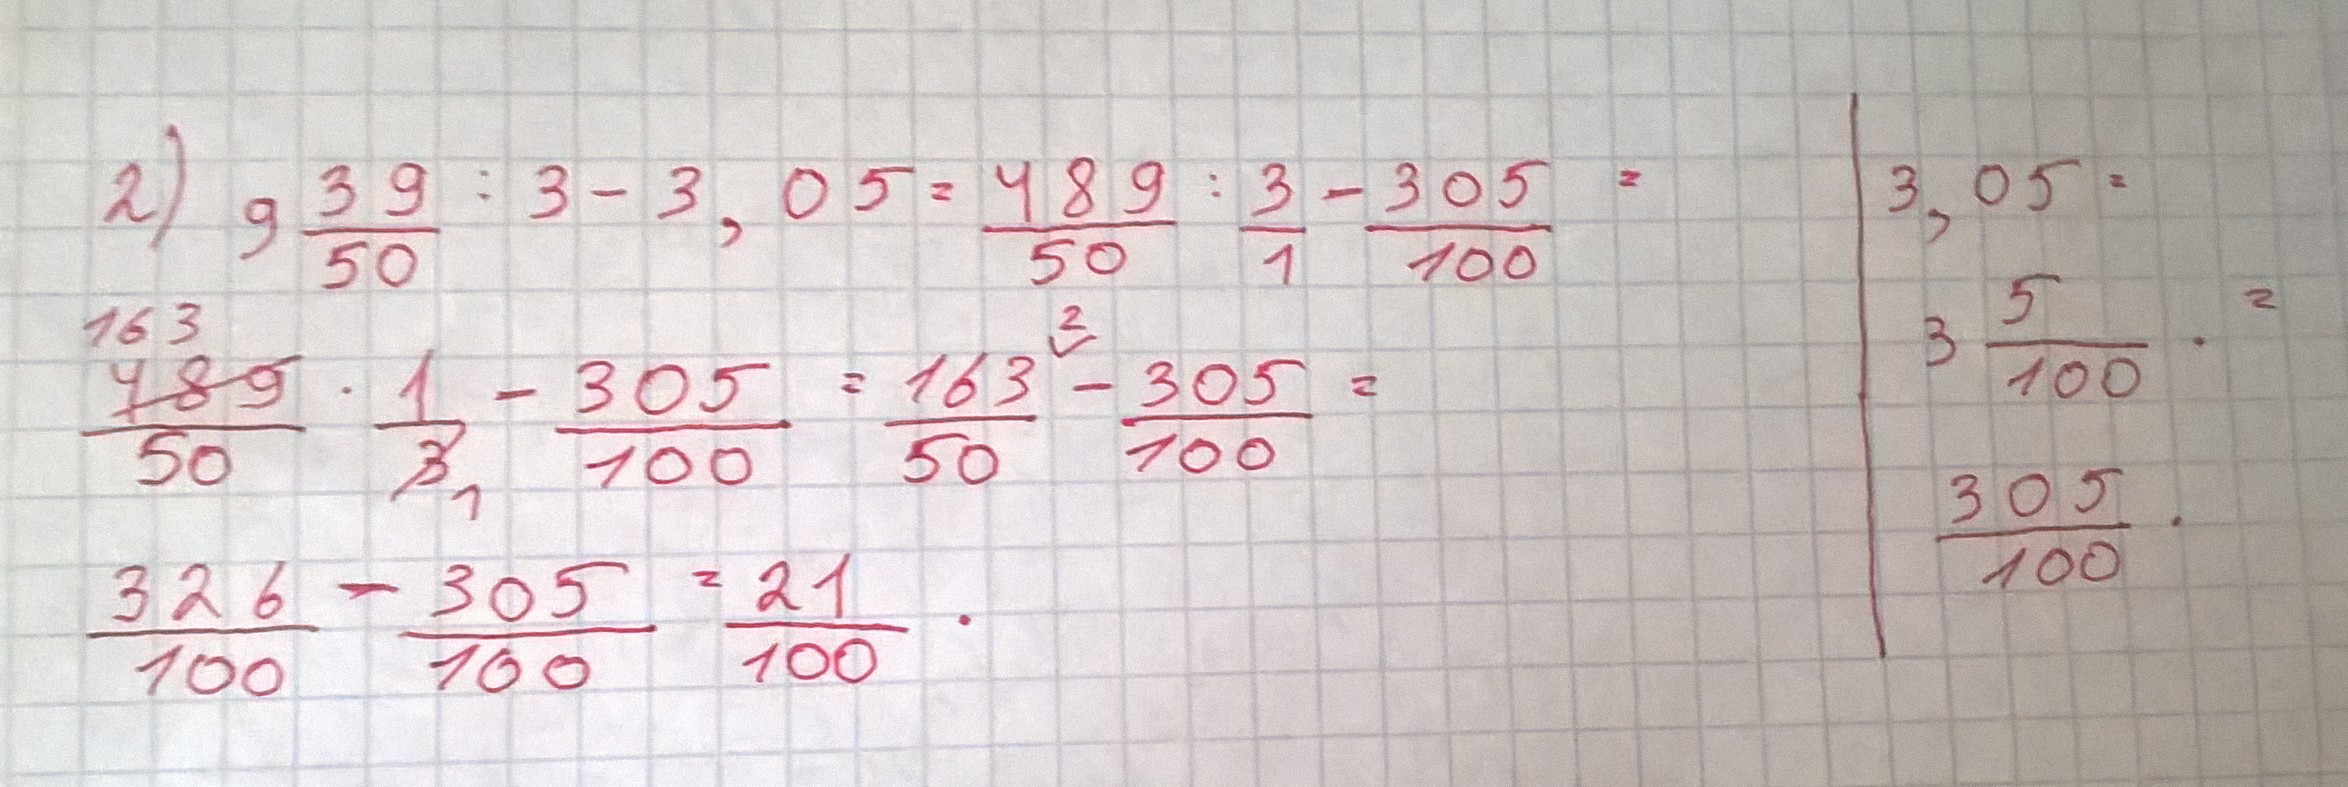 2) 9 39/50 : 3 - 3,05 = 489/50 : 3/1 - 305/100 =
163
489/50 · 1/3 1 - 305/100 = 163/50 2 - 305/100 =
326/100 - 305/100 = 21/100 .
3,05 =
3 5/100 . =
305/100 .